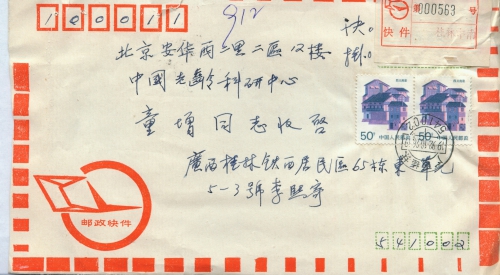 100011
912
快。
掛。
000563 号
快件
北京安华西里二區12楼
中國老齡科研中心
童增同志收啓
50分 中国人民邮政
50分 中国人民邮政
廣西桂林铁西居民區65栋東单元
5-3號李熙寄
邮政快件
541002